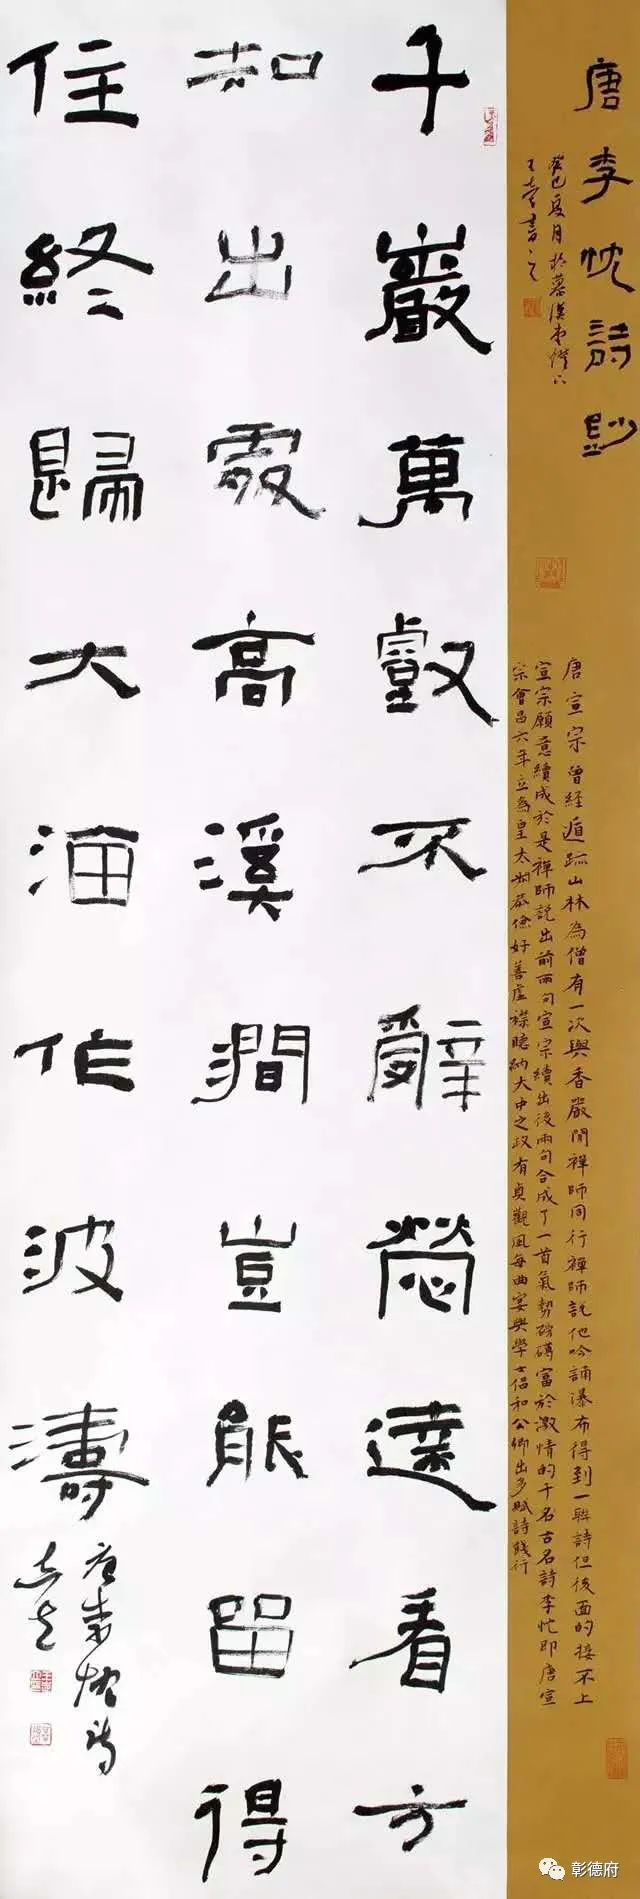 唐李忱詩
癸巳夏月於慕漢
書之
唐宣宗曾經遁跡山林為僧有一次與香嚴閒禪師同行禪師說他吟誦瀑布得到一聯詩但後面的接不上
宣宗願意續成於是禪師說出前兩句宣宗續出後兩句合成了一首氣勢磅礴富於激情的千名古名詩李忱即唐宣
宗會昌六年立為皇太叔恭儉好善虛襟聽納大中之政有貞觀風每曲宴與學士倡和公卿出多賦詩餞行
千巖萬壑不辭勞遠看方
知出處高溪澗豈能留得
住終歸大海作波濤
唐李忱詩
彰德府